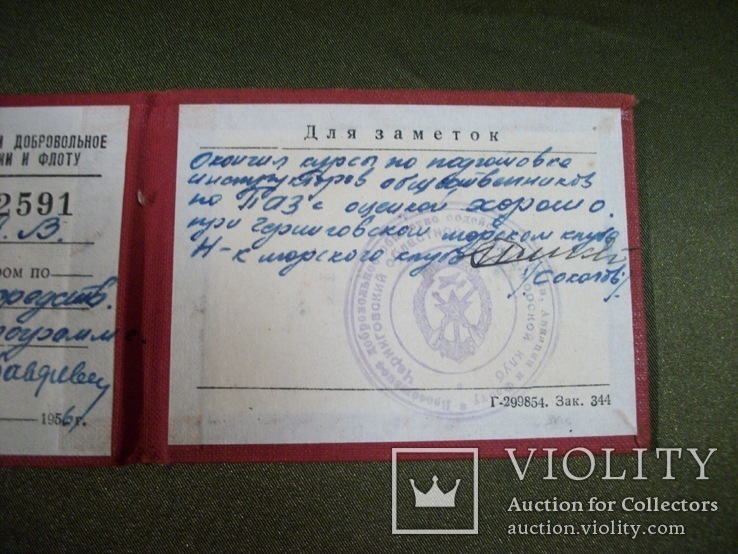 И ДОБРОВОЛЬНОЕ
ИИ И ФЛОТУ
2591
.В.
ром по
ородств.
рограмме.
1956 г.
Для заметок
Окончил курсы по подготовке
инструкторов общественников
по ПАЗ с оценкой хорошо.
при Черниговском морском клубе
Н-к морского клуба
/Соколов/
Черниговский областной морской клуб
Г-299854. Зак. 344
VIOLITY
Auction for Collectors
auction.violity.com